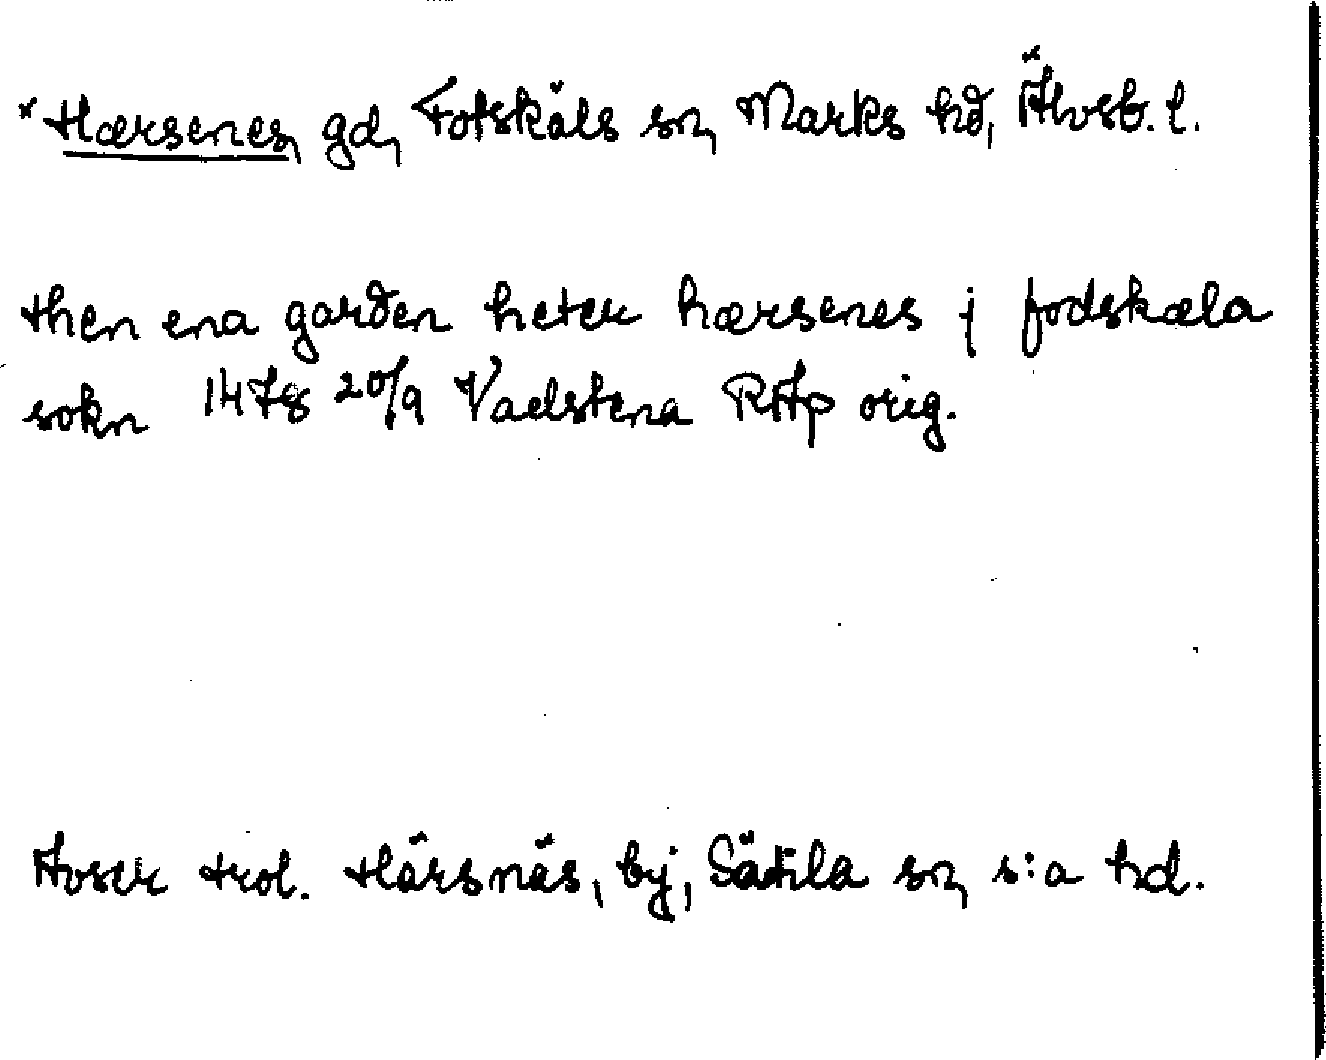 *Hærsenes, gd, Fotskäls sn, Marks hd, Älvsb. l.
then ena garden heter hærsenes j fodskæla
sokn 1478 20/9 Vadstena RAp orig.
Avser trol. Härsnäs, by, Sätila sn, s:a hd.